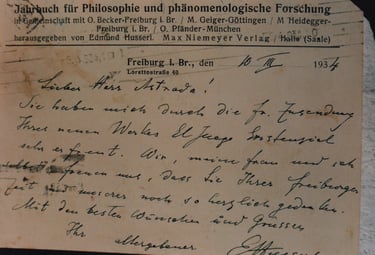 Jahrbuch für Philosophie und phänomenologische Forschung
in Gemeinschaft mit O. Becker-Freiburg i. Br. / M. Geiger-Göttingen / M. Heidegger-
Freiburg i. Br. / O. Pfänder-München
herausgegeben von Edmund Husserl. Max Niemeyer Verlag / Halle (Saale)
Freiburg i. Br., den 10 III 1934
Lorettostraße 40
Lieber Herr Astrada!
Sie haben mich durch die fr. Zusendung
Ihres neuen Werkes El Juego Existencial
sehr erfreut. Wir, meine Frau und ich
freuen uns, dass Sie Ihrer Freiburger
Zeit unserer noch so herzlich gedenken.
Mit den besten Wünschen und Grüssen
Ihr
EHusserl